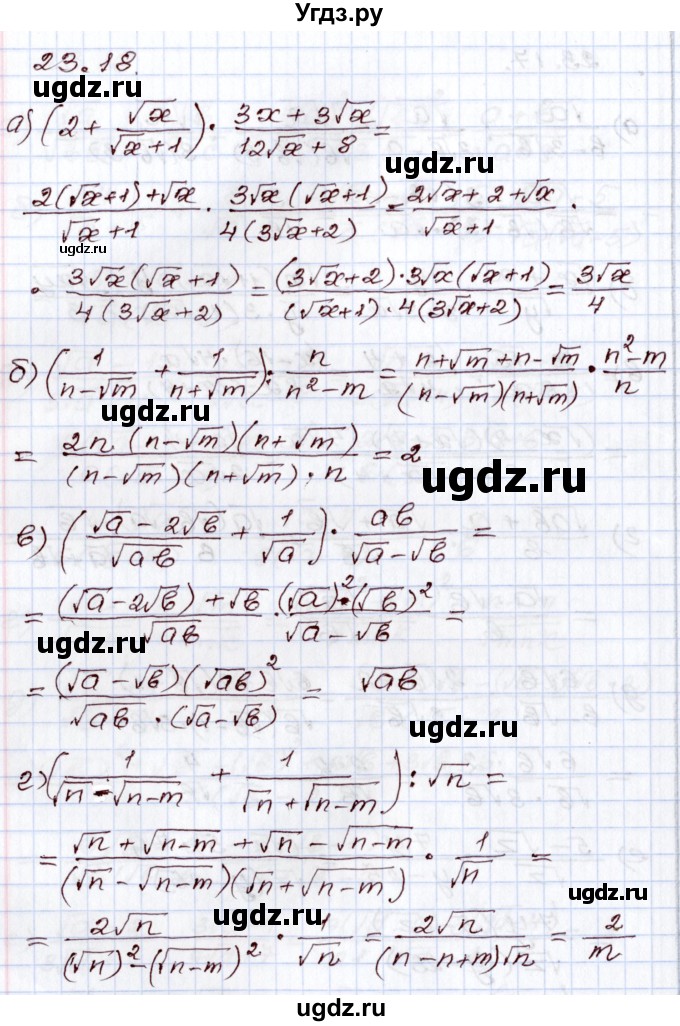 Угдз.ру
23.18.
ugdz.ru
а) (2 + √x/(√x+1)) · (3x+3√x)/(12√x+8) =
ugdz.ru
(2(√x+1)+√x)/(√x+1) · (3√x(√x+1))/(4(3√x+2)) = (2√x+2+√x)/(√x+1) ·
ugdz.ru
· (3√x(√x+1))/(4(3√x+2)) = ((3√x+2)·3√x(√x+1))/((√x+1)·4(3√x+2)) = 3√x/4
ugdz.ru
б) (1/(n-√m) + 1/(n+√m)) : n/(n²-m) = (n+√m+n-√m)/((n-√m)(n+√m)) · (n²-m)/n
ugdz.ru
= (2n(n-√m)(n+√m))/((n-√m)(n+√m)·n) = 2
ugdz.ru
в) ((√a-2√b)/√ab + 1/√a) · ab/(√a-√b) =
ugdz.ru
= ((√a-2√b)+√b)/√ab · ((√a)²·(√b)²)/(√a-√b) =
ugdz.ru
= ((√a-√b)(√ab)²)/(√ab·(√a-√b)) = √ab
ugdz.ru
г) (1/(√n-√(n-m)) + 1/(√n+√(n-m))) : √n =
ugdz.ru
= (√n+√(n-m)+√n-√(n-m))/((√n-√(n-m))(√n+√(n-m))) · 1/√n =
ugdz.ru
= 2√n/((√n)²-(√(n-m))²) · 1/√n = 2√n/((n-n+m)√n) = 2/m
ugdz.ru
ugdz.ru